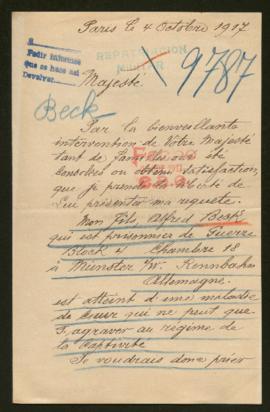 Paris le 4 Octobre 1917
Pedir informes
que se hace así
Devolver
REPATRIACION
MILITAR
9787
Majesté
Beck
Par la bienveillante
intervention de Votre Majesté
tant de familles ont été
consolées ou obtenu satisfaction,
que je prends la liberté de
Lui présenter ma requête.
Mon Fils Alfred Beck
qui est prisonnier de Guerre
Block 4 Chambre 18
à Münster i/W. Rennbahn
Allemagne
est atteint d'une maladie
de cœur qui ne peut que
s'agraver au régime de
la Captivité
Je voudrais donc prier